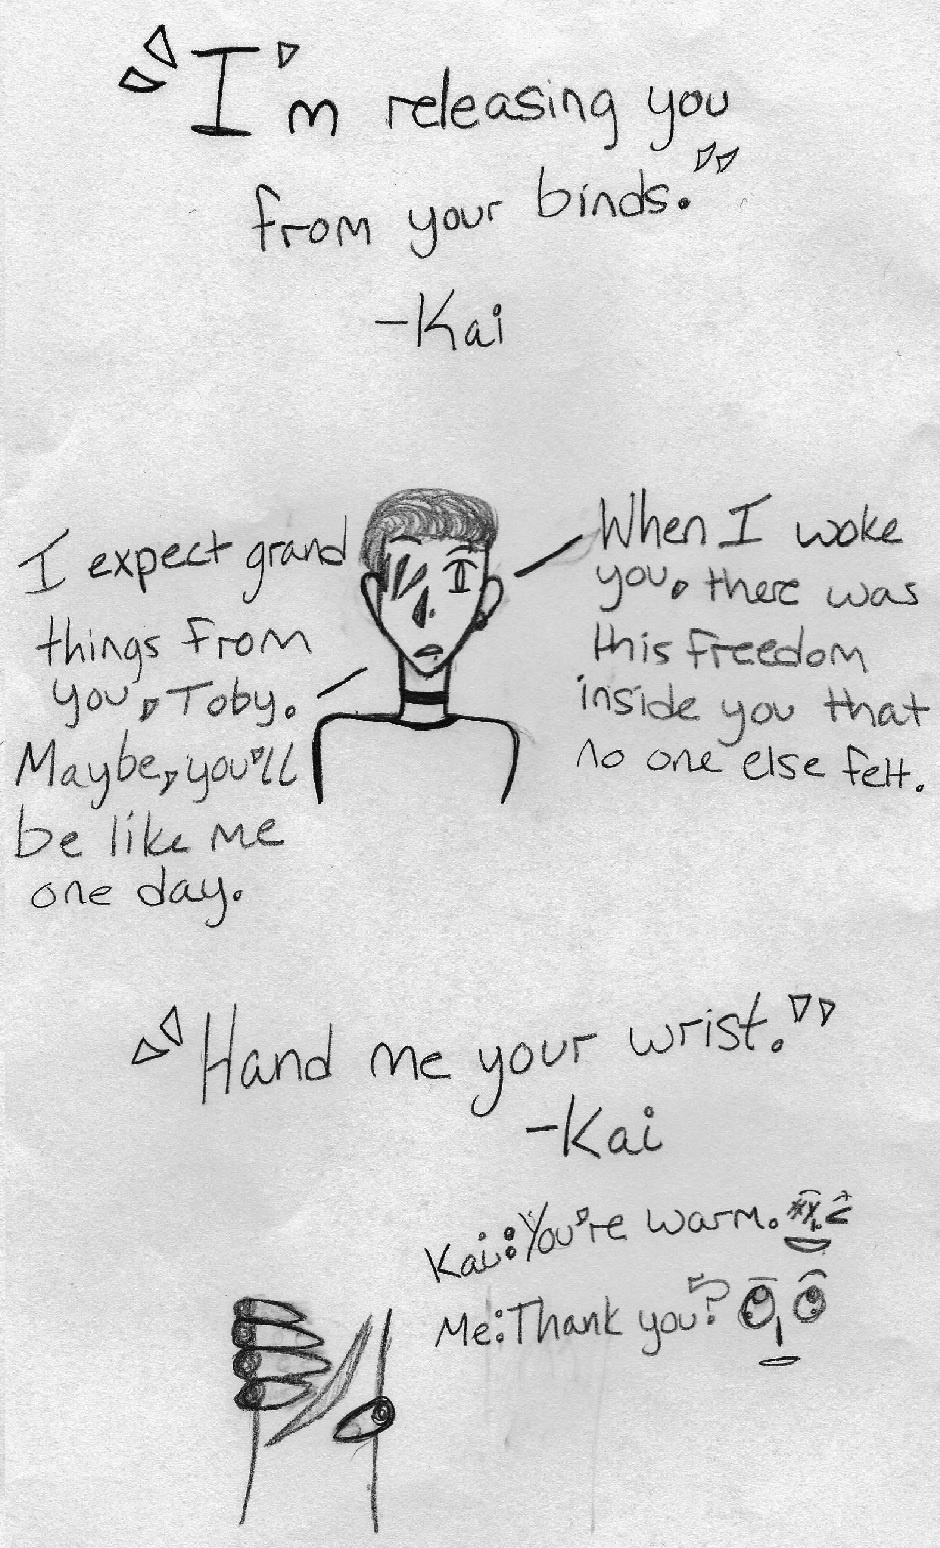 "I'm releasing you
from your binds."
-Kai
When I woke
you, there was
this freedom
inside you that
no one else felt.
I expect grand
things from
you, Toby.
Maybe, you'll
be like me
one day.
"Hand me your wrist."
-Kai
Kai: You're warm.
Me: Thank you?